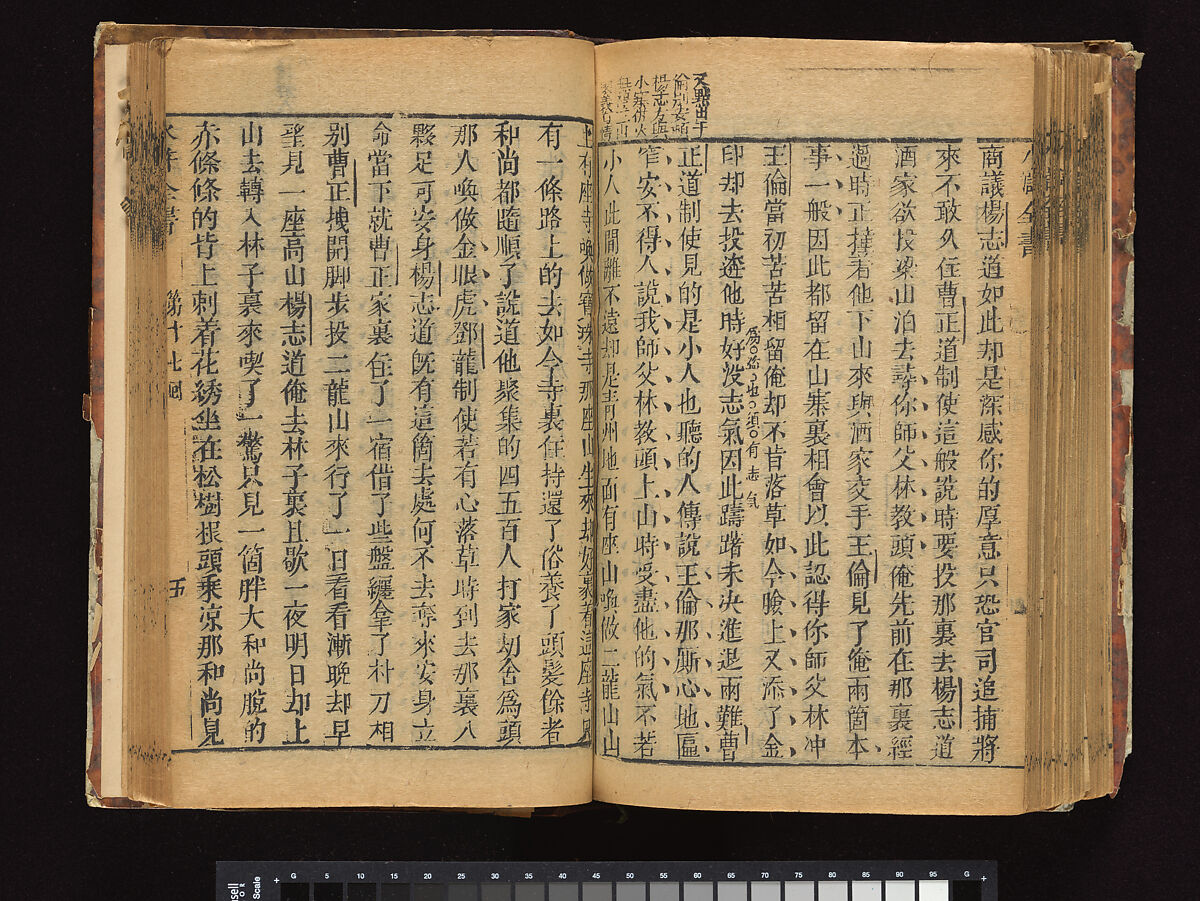 商議楊志道如此却是深感你的厚意只恐官司追捕將
來不敢久住曹正道制使這般說時要投那裏去楊志道
洒家欲投梁山泊去尋你師父林教頭俺先前在那裏經
過時正撞着他下山來與洒家交手王倫見了俺兩箇本
事一般因此都留在山寨裏相會以此認得你師父林冲
王倫當初苦苦相留俺却不肯落草如今臉上又添了金
印却去投逩他時好沒志氣因此躊躇未決進退兩難曹
正道制使見的是小人也聽的人傳說王倫那厮心地匾
窄安不得人說我師父林教頭上山時受盡他的氣不若
小人此間離不遠却是青州地面有座山喚做二龍山山
上有座寺喚做寶珠寺那座山生來却好裹着這座寺只
有一條路上的去如今寺裏住持還了俗養了頭髮餘者
和尚都隨順了說道他聚集的四五百人打家刼舍爲頭
那人喚做金眼虎鄧龍制使若有心落草時到去那裏入
夥足可安身楊志道旣有這箇去處何不去奪來安身立
命當下就曹正家裏住了一宿借了些盤纏拿了朴刀相
別曹正拽開脚步投二龍山來行了一日看看漸晚却早
望見一座高山楊志道俺去林子裏且歇一夜明日却上
山去轉入林子裏來喫了一驚只見一箇胖大和尚脫的
赤條條的背上刺着花綉坐在松樹根頭乘凉那和尚見
全書
第十七囘
五
又點出王
有志氣
G 5 10 20 25 30 35 40 45 50 55 60 65 70 75 80 85 90 95 G
Scale